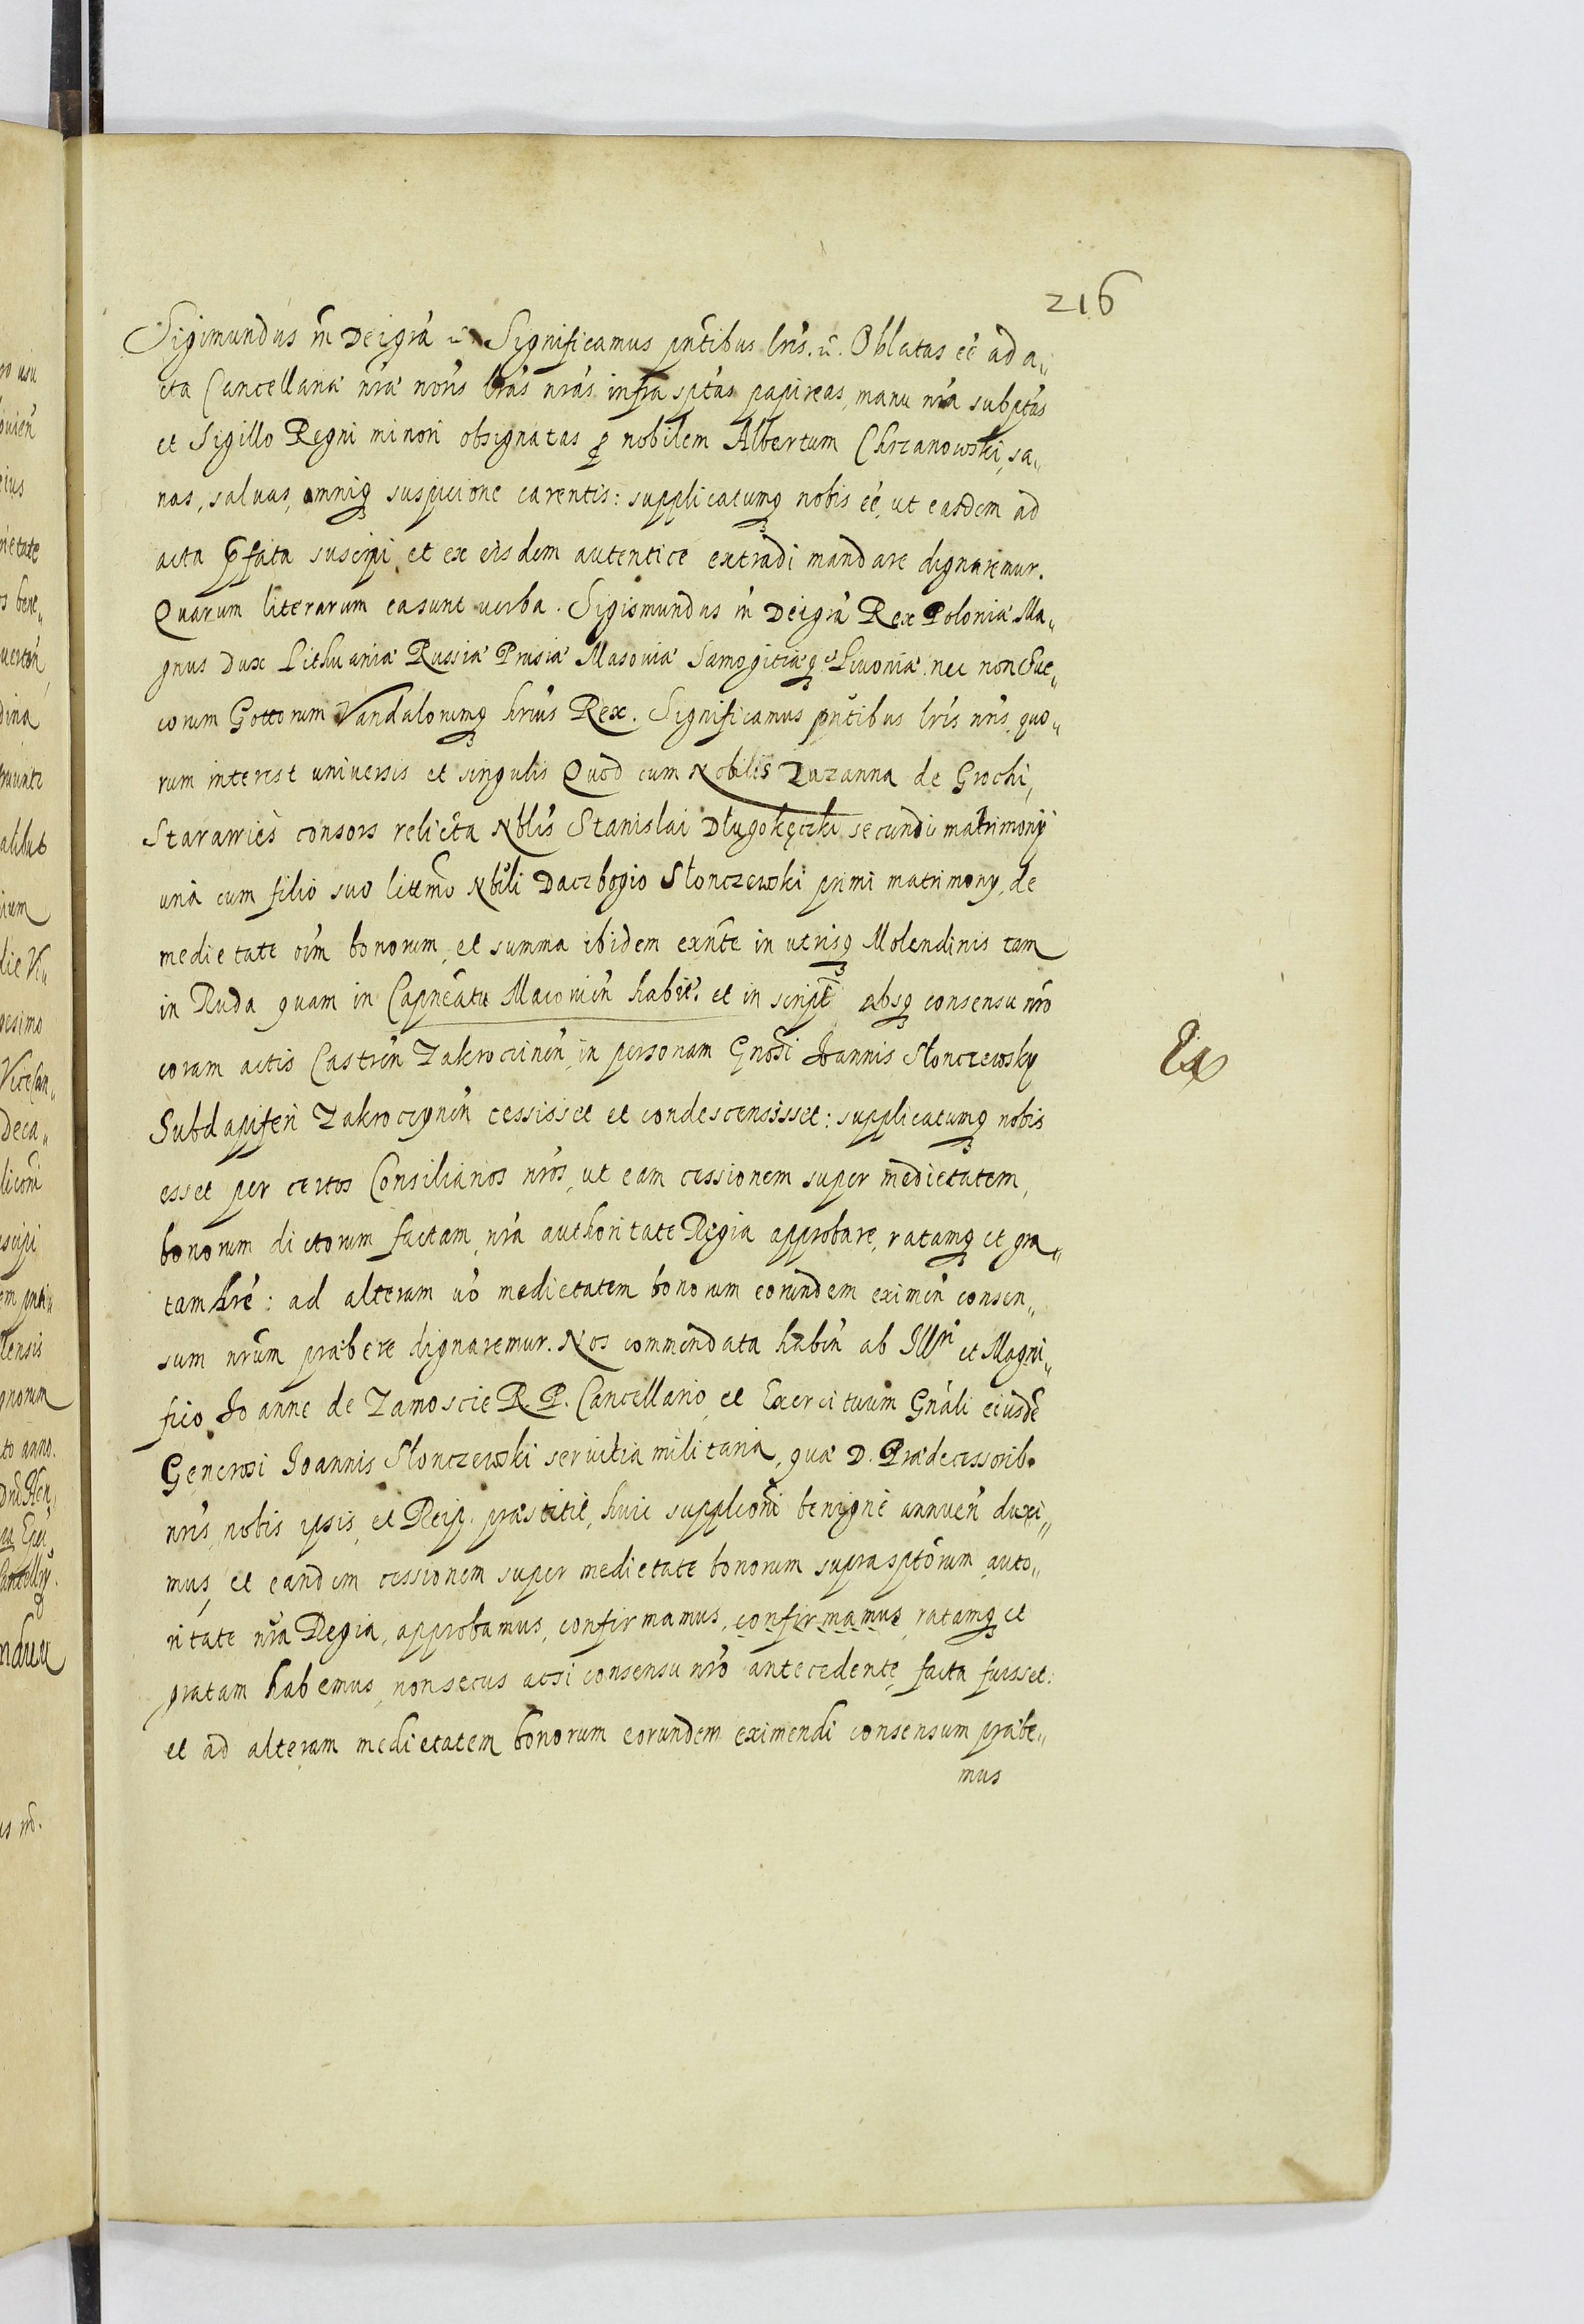 216
Sigimundus iii Dei gr̃a ac̃. Significamus pñtibus lr̃is. ac̃. Oblatas eẽ ad a„
cta Cancellariæ nr̃æ nom̃s lr̃as nr̃as infra sp̃tas papireas, manu nr̃a subp̃tas
et Sigillo Regni minori obsignatas ꝑ nobilem Albertum Chrzanowski, sa„
nas, saluas, omniq3 suspicione carentis: supplicatumq3 nobis eẽ, ut easdem ad
acta p̃fata suscipi, et ex eisdem autentice extradi mandare dignaremur.
Quarum literarum ea sunt uerba. Sigismundus iii Dei gr̃a Rex Poloniæ Ma„
gnus Dux Lithuaniæ Russiæ Prusiæ Masoviæ Samogitiæq3 Livoniæ nec non Sue„
corum Gottorum Vandalorumq3 hr̃ius Rex. Significamus pñtibus lr̃is nr̃is quo„
rum interest universis et singulis Quod cum Nobilis Zuzanna de Grochi,
Starawies consors relicta Nblis̃ Stanislai Długołęczki secundi matrimonÿ
unà cum filio suo littm̃o Nbili Daczbogio Słonczewski primi matrimony, de
medietate oĩm bonorum, et summa ibidem exnt̃e in utrisq3 Molendinis tam
in Ruda quam in Capneatu Macouieñ habit̃. et in script̃ absq3 consensu nr̃o
coram actis Castreñ Zakrocineñ, in personam Gnos̃i Joannis Słonczewsky
Subdapiferi Zakroczyneñ cessisset et condescensisset: supplicatumq3 nobis
esset per certos Consiliarios nr̃os, ut eam cessionem super medietatem,
bonorum dictorum factam, nr̃a authoritate Regia approbare, ratamq3 et gra„
tam hr̃e: ad alteram uõ medietatem bonorum eorundem eximeñ consen„
sum nr̃um præbere dignaremur. Nos commendata habeñ ab Illri et Magni„
fico Joanne de Zamoscie R. P. Cancellario, et Exercituum Gñali eiusdẽ
Generosi Joannis Słonczewski servitia militaria, quæ D. Prædecessorib9
nr̃is, nobis ipsis, et Reip. præstitit, huic supplconĩ benigne annueñ duxi„
mus, et eandem cessionem super medietate bonorum suprasptorum, auto„
ritate nr̃a Regia, approbamus, confirmamus, confirmamus, ratamq3 et
gratam habemus, nonsecus acsi consensu nr̃o antecedente, facta fuisset:
et ad alteram medietatem bonorum eorundem eximendi consensum præbe„
mus
Ex